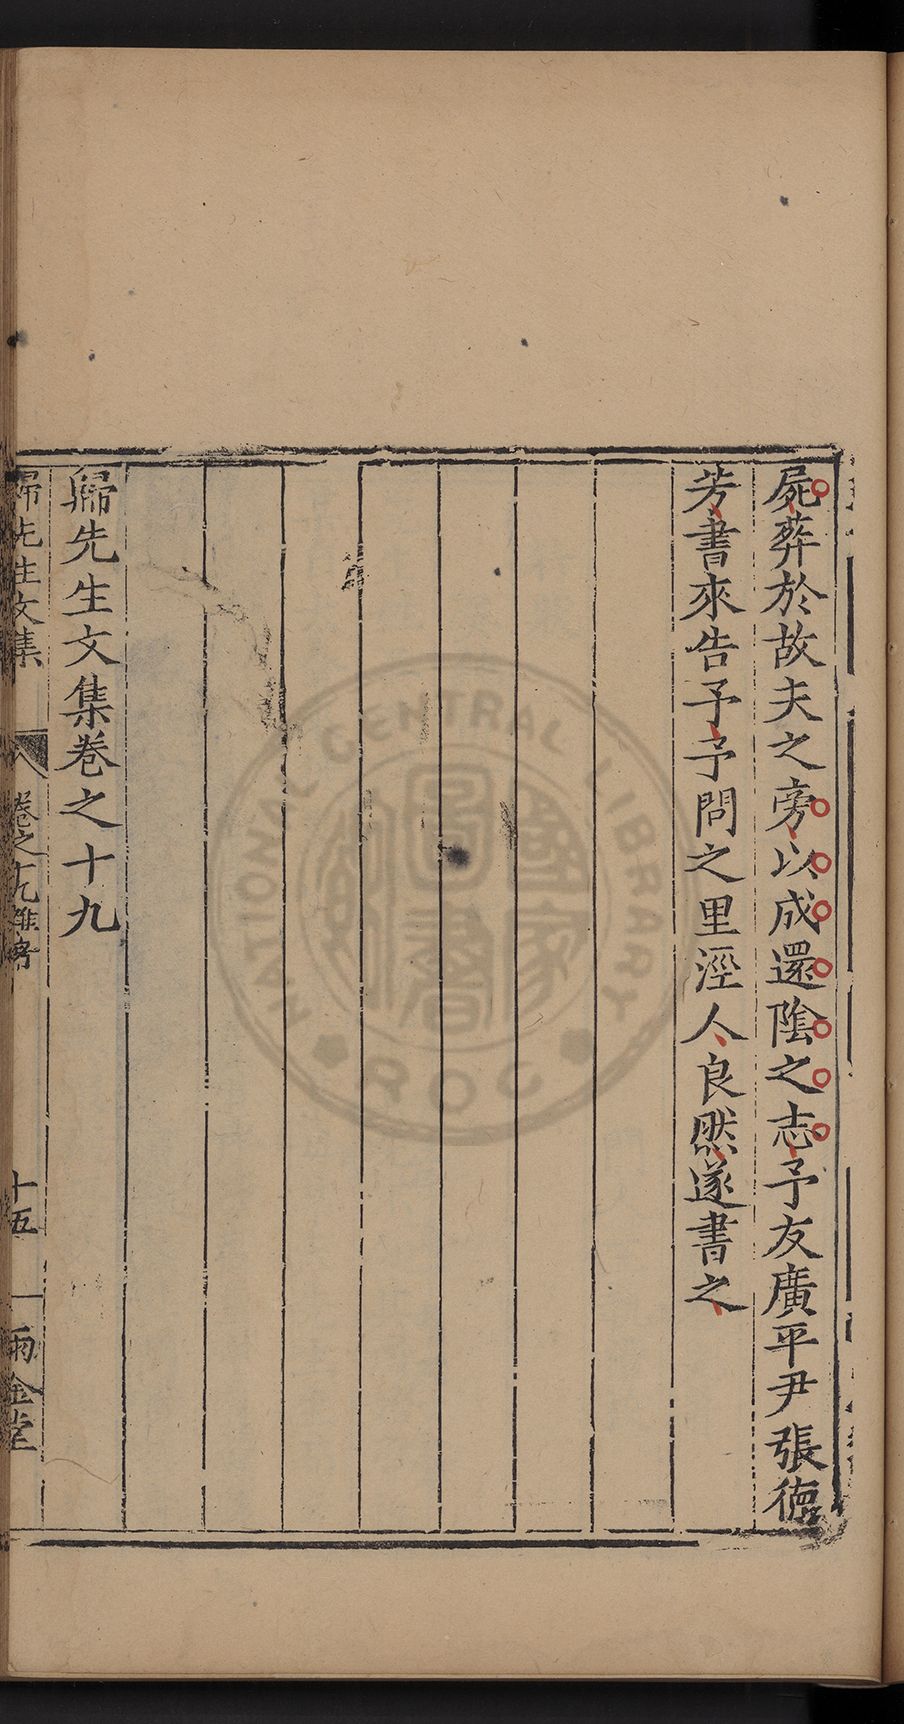 屍葬於故夫之旁以成還陰之志予友廣平尹張德
芳書來告予予問之里涇人良然遂書之
歸先生文集卷之十九
歸先生文集 卷之十九雜著 十五 雨金堂
圖書 國家
NATIONAL CENTRAL LIBRARY
ROC